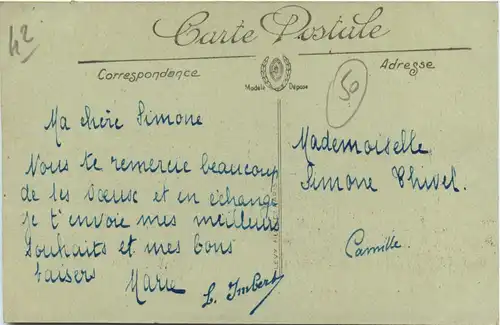 42
Carte Postale
Correspondance
Adresse
Modèle Déposé
50
Ma chère Simone
Nous te remercie beaucoup
de tes vœux et en échange
je t'envoie mes meilleurs
souhaits et mes bons
baisers
Marie
L. Imbert
Mademoiselle
Simone Thivel.
Camille.